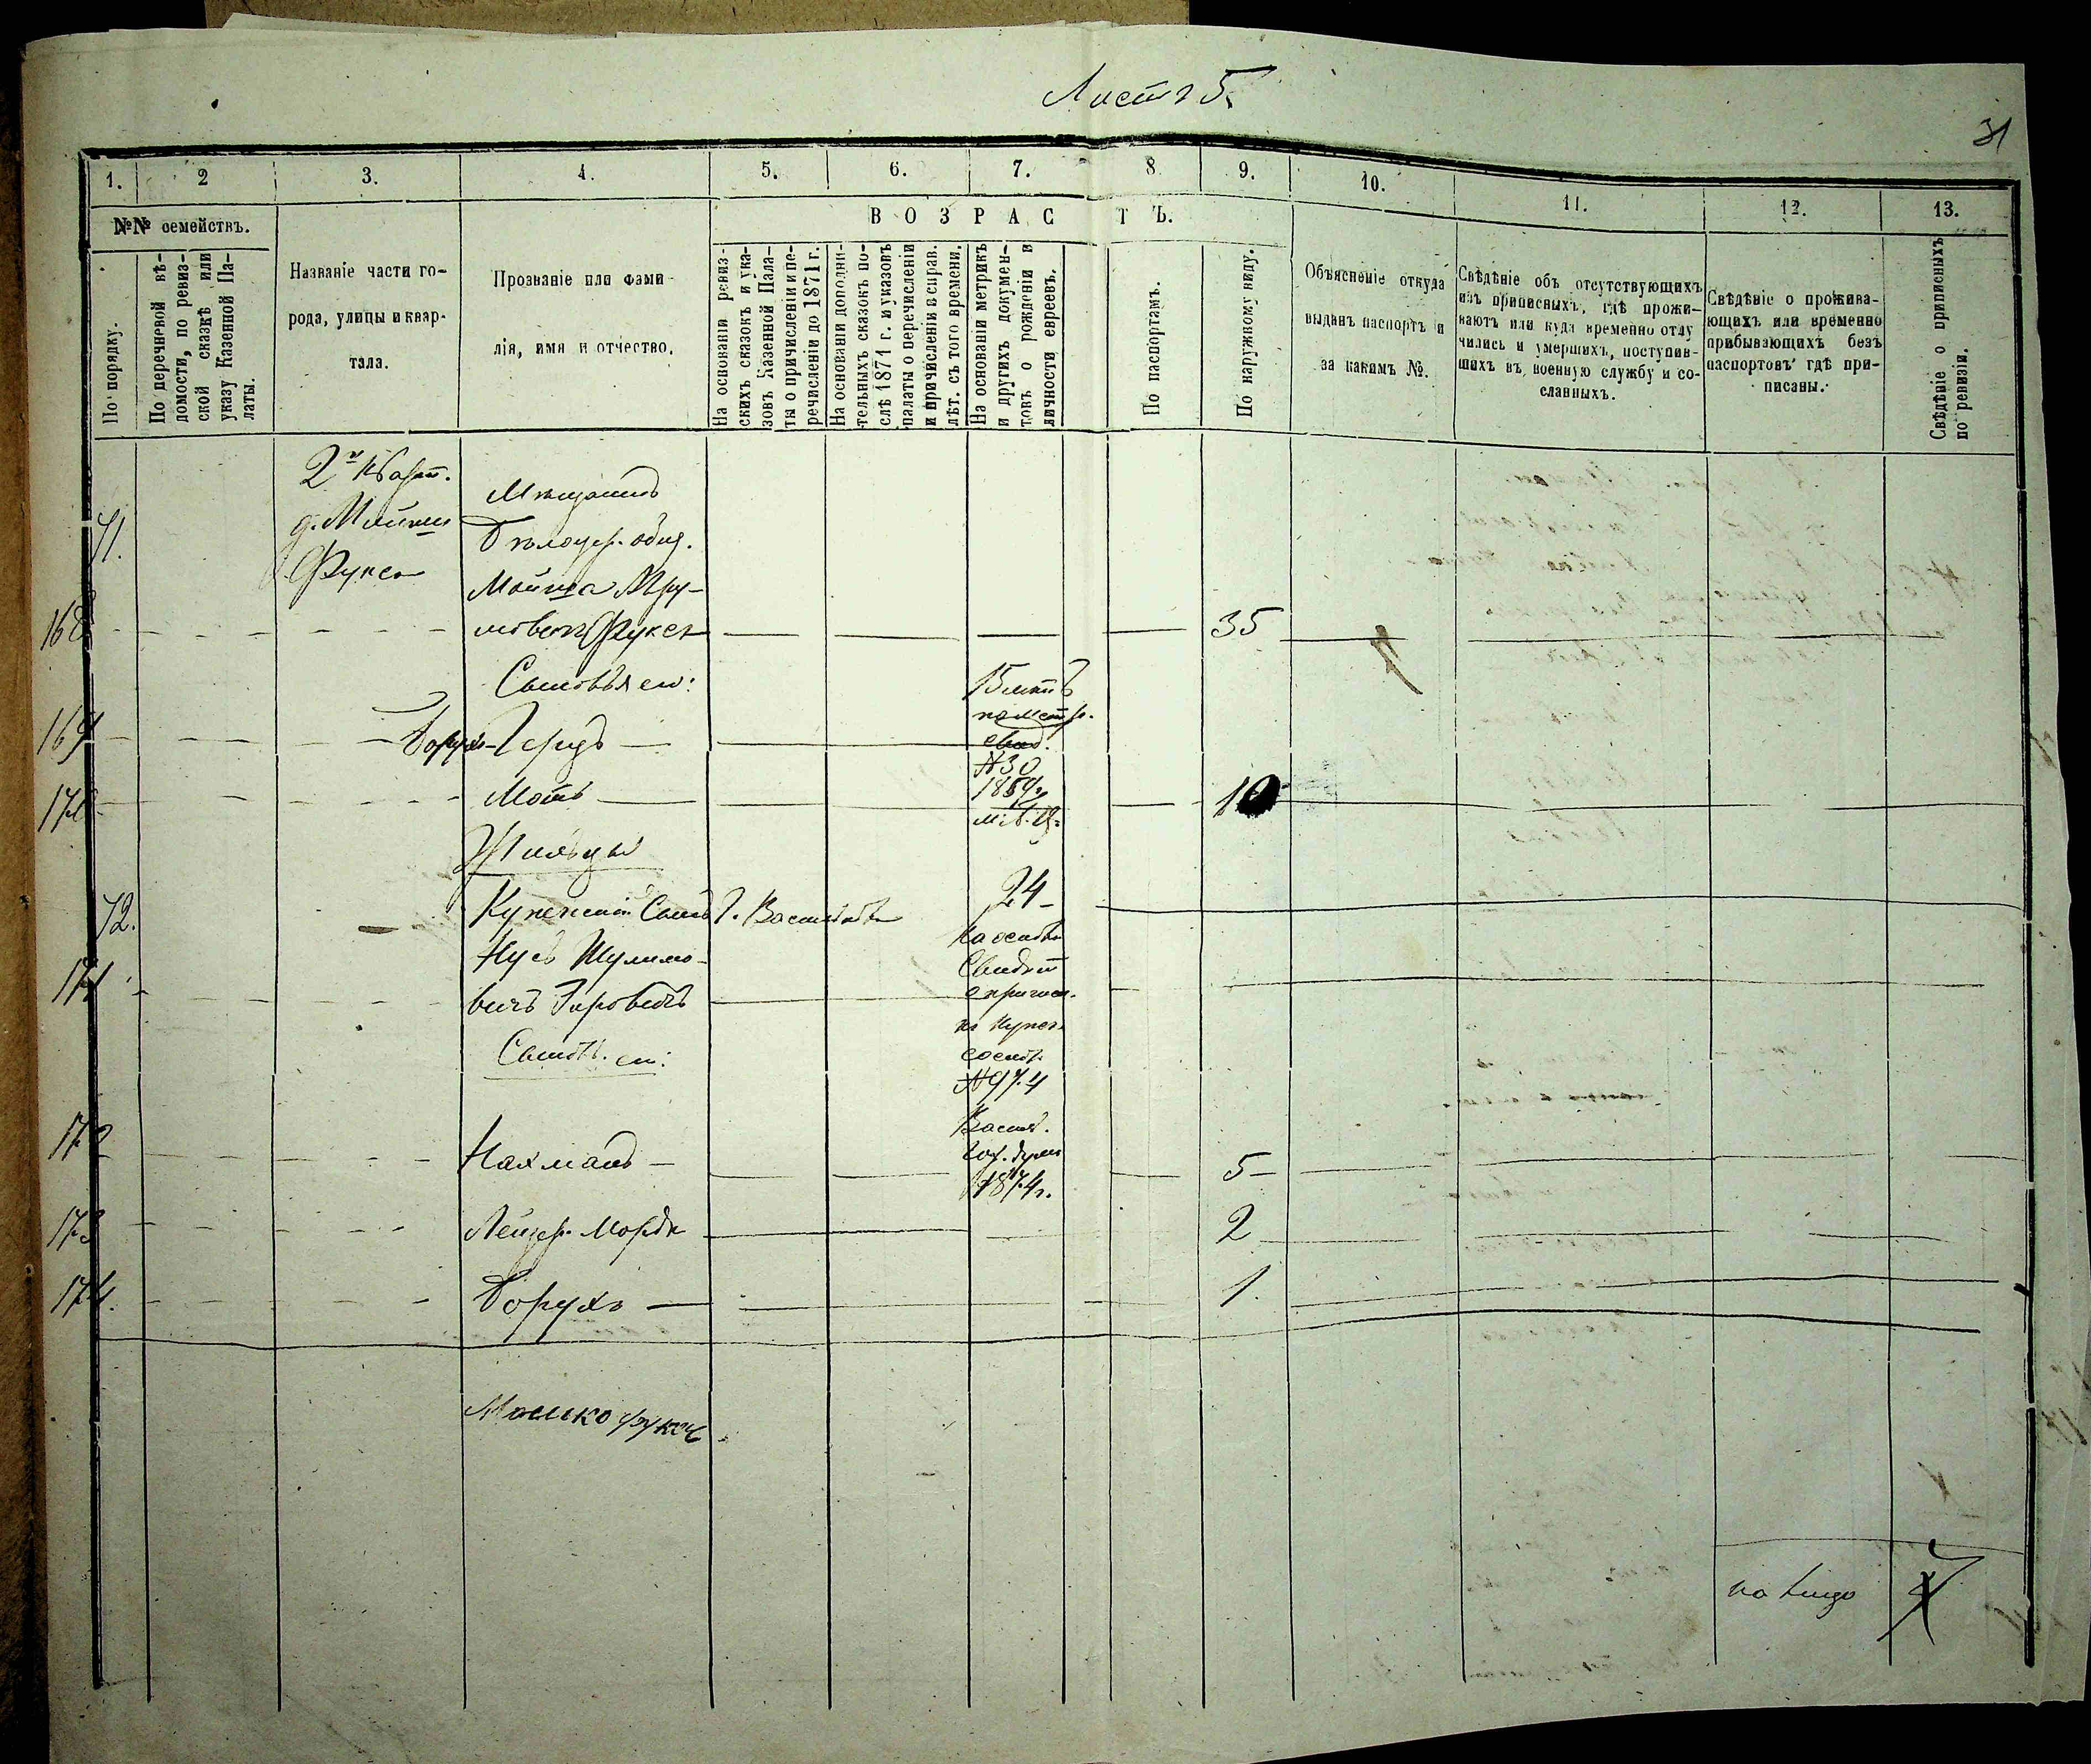 Листъ 5.
31
1. 2 3. 4. 5. 6. 7. 8 9. 10. 11. 12. 13.
№№ семействъ.
По порядку.
По перечневой вѣ-
домости, по ревиз-
ской сказкѣ или
указу Казенной Па-
латы.
Названіе части го-
рода, улицы и квар-
тала.
Прозваніе или фами-
лія, имя и отчество.
ВОЗРАСТЪ.
На основаніи ревиз-
скихъ сказокъ и ука-
зовъ Казенной Пала-
ты о причисленіи и пе-
речисленіи до 1871 г.
На основаніи дополни-
тельныхъ сказокъ по-
слѣ 1871 г. и указовъ
палаты о перечисленіи
и причисленіи и справ.
лѣт. съ того времени.
На основаніи метрикъ
и другихъ докумен-
товъ о рожденіи и
личности евреевъ.
По паспортамъ.
По наружному виду.
Объясненіе откуда
выданъ паспортъ и
за какимъ №.
Свѣдѣніе объ отсутствующихъ
изъ приписныхъ, гдѣ прожи-
ваютъ или куда временно отлу
чились и умершихъ, поступив-
шихъ въ военную службу и со-
сланныхъ.
Свѣдѣніе о прожива-
ющихъ или временно
прибывающихъ безъ
паспортовъ гдѣ при-
писаны.
Свѣдѣніе о приписныхъ
по ревизіи.
71.
2й Кварт.
д. Мойши
Фукса
Мѣщанинъ
Бѣлоцер. общ.
Мойша
168 Фуксъ 35
Сыновья его: 15 лѣтъ
по метр.
169 Борухъ-Герцъ свид.
№30
1859.
170 Моть 10
Жильцы
72. Купеческій Сынъ г. Василькова 24
Нусь Шулимо- на основ.
Свидѣт
171 вичъ о причис.
по Купеч.
Сынов. его: сослов.
№974
Васил.
172 Нахманъ гор. думы 5
1874г.
173 Лейзер. Мордк 2
174. Борухъ 1.
Мошко Фуксъ
на лицо 7